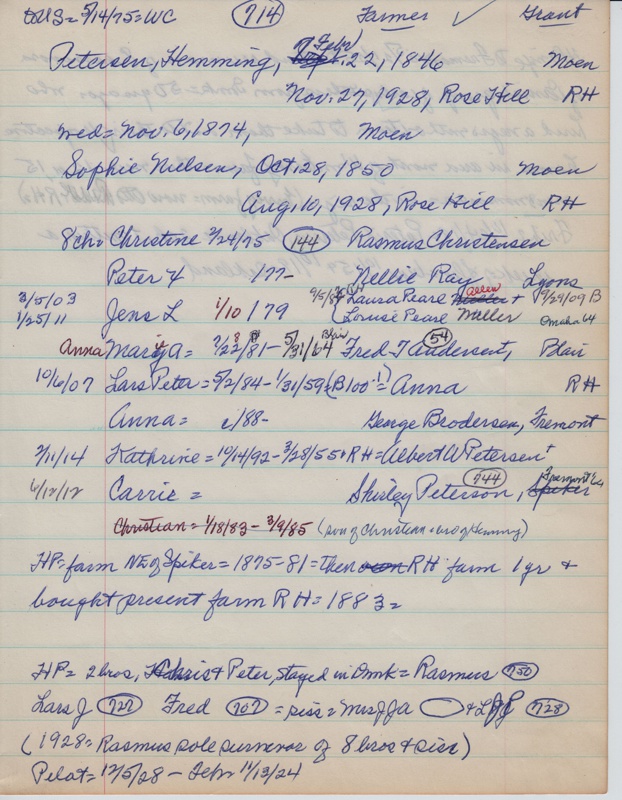 S = 5/14/75 = WC 714 Farmer ✓ Grant
Petersen, Hemming, Febr 22, 1846 Moen
Nov. 27, 1928, Rose Hill RH
wed = Nov. 6, 1874, Moen
Sophie Nielsen, Oct. 28, 1850 Moen
Aug. 10, 1928, Rose Hill RH
8ch = Christine 2/24/75 144 Rasmus Christensen
Peter 177- Nellie Ray Lyons
3/5/03 1/25/11 Jens L 1/10/79 Laura Pearl Allen + 9/29/09 B
Louise Pearl Miller Omaha 64
Anna Maria = 81 - 5/31/64 Blair Fred T Andersen, 54 Blair
10/6/07 Lars Peter = 5/2/84 - 1/31/59 (B100-1) = Anna RH
Anna = /88- George Brodersen, Fremont
2/11/14 Kathrine = 10/14/92 - 3/28/55 + RH = Albert W Petersen +
6/12/12 Carrie = Shirley Peterson, 744 Fremont '64 Spiker
Christian = 1/18/83 - 3/9/85 (son of Christian = bro of Hemming)
HP = farm NE of Spiker = 1875-81 = then RH farm 1 yr +
bought present farm RH = 1883 =
HP = 2 bros, Chris + Peter, stayed in Dmk = Rasmus 750
Lars J 727 Fred 707 = sis = Mrs J Ja + L 728
(1928 = Rasmus sole survivor of 8 bros + siss)
Pilot = 12/5/28 - Febr 11/13/24